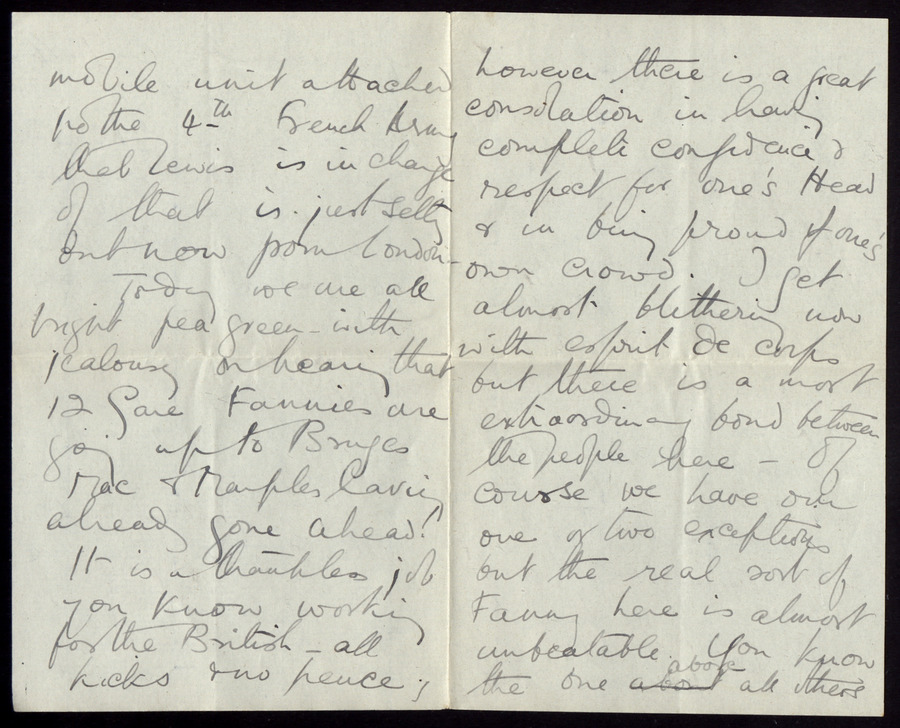 mobile unit attached
to the 4th French Army
that Lewis is in charge
of that is just setting
out now from London -
Today we are all
bright pea green - with
jealousy on hearing that
12 Gare Fannies are
going up to Bruges
Mac & Marples having
already gone ahead!
It is a thankless job
you know working
for the British - all
kicks & no pence ;
however there is a great
consolation in having
complete confidence &
respect for one's Head
& in being proud of one's
own crowd. I get
almost blithering now
with esprit de corps
but there is a most
extraordinary bond between
the people here - Of
course we have our
one or two exceptions
but the real sort of
Fanny here is almost
unbeatable. You know
above
the one about all others